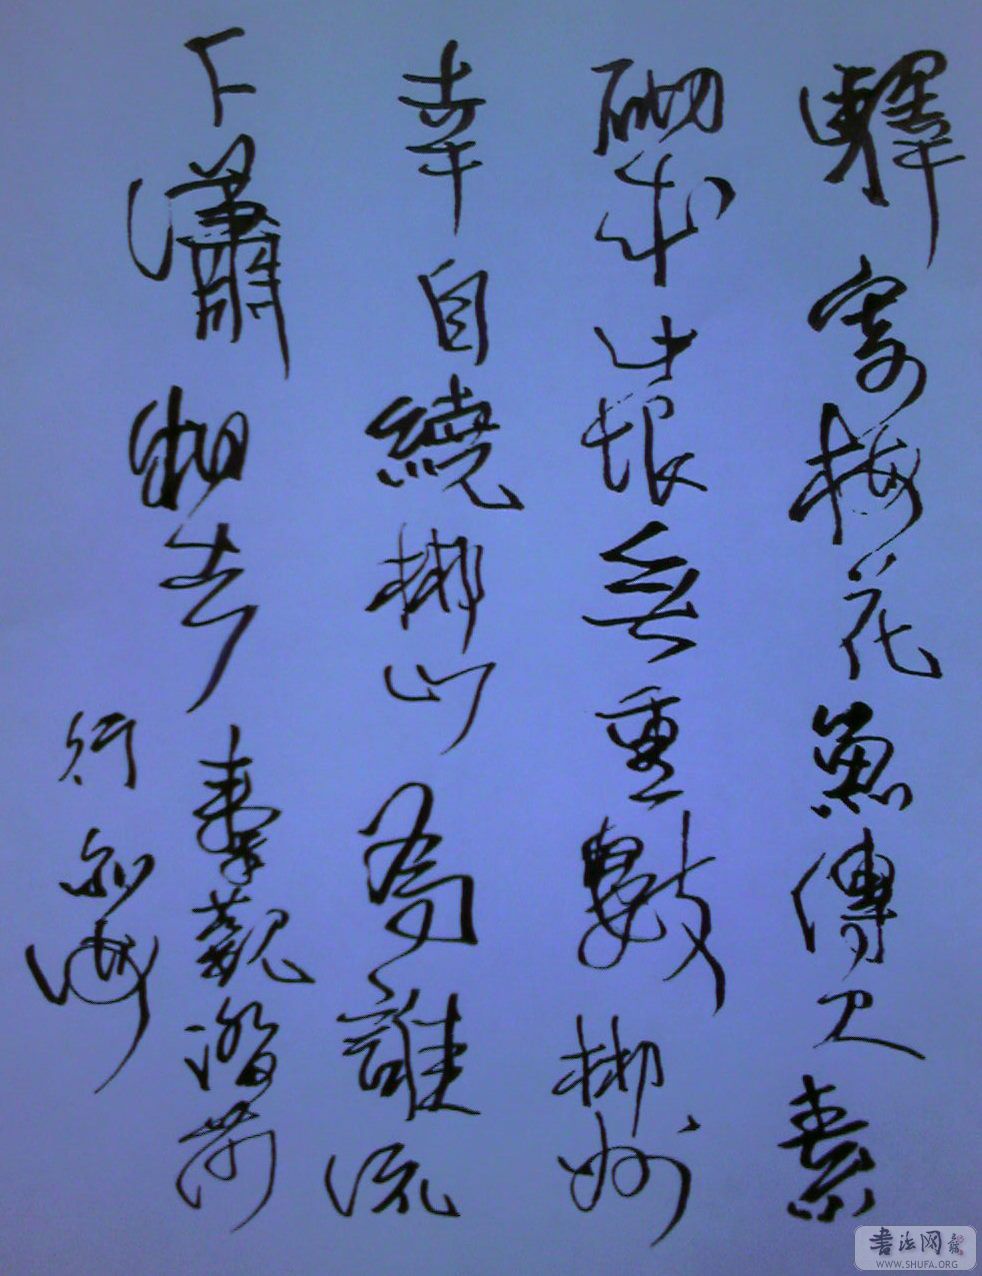 驛寄梅花魚傳尺素
砌成此恨無重數郴州
幸自繞郴山為誰流
下瀟湘去 秦觀踏莎
行
書法网
WWW.SHUFA.ORG